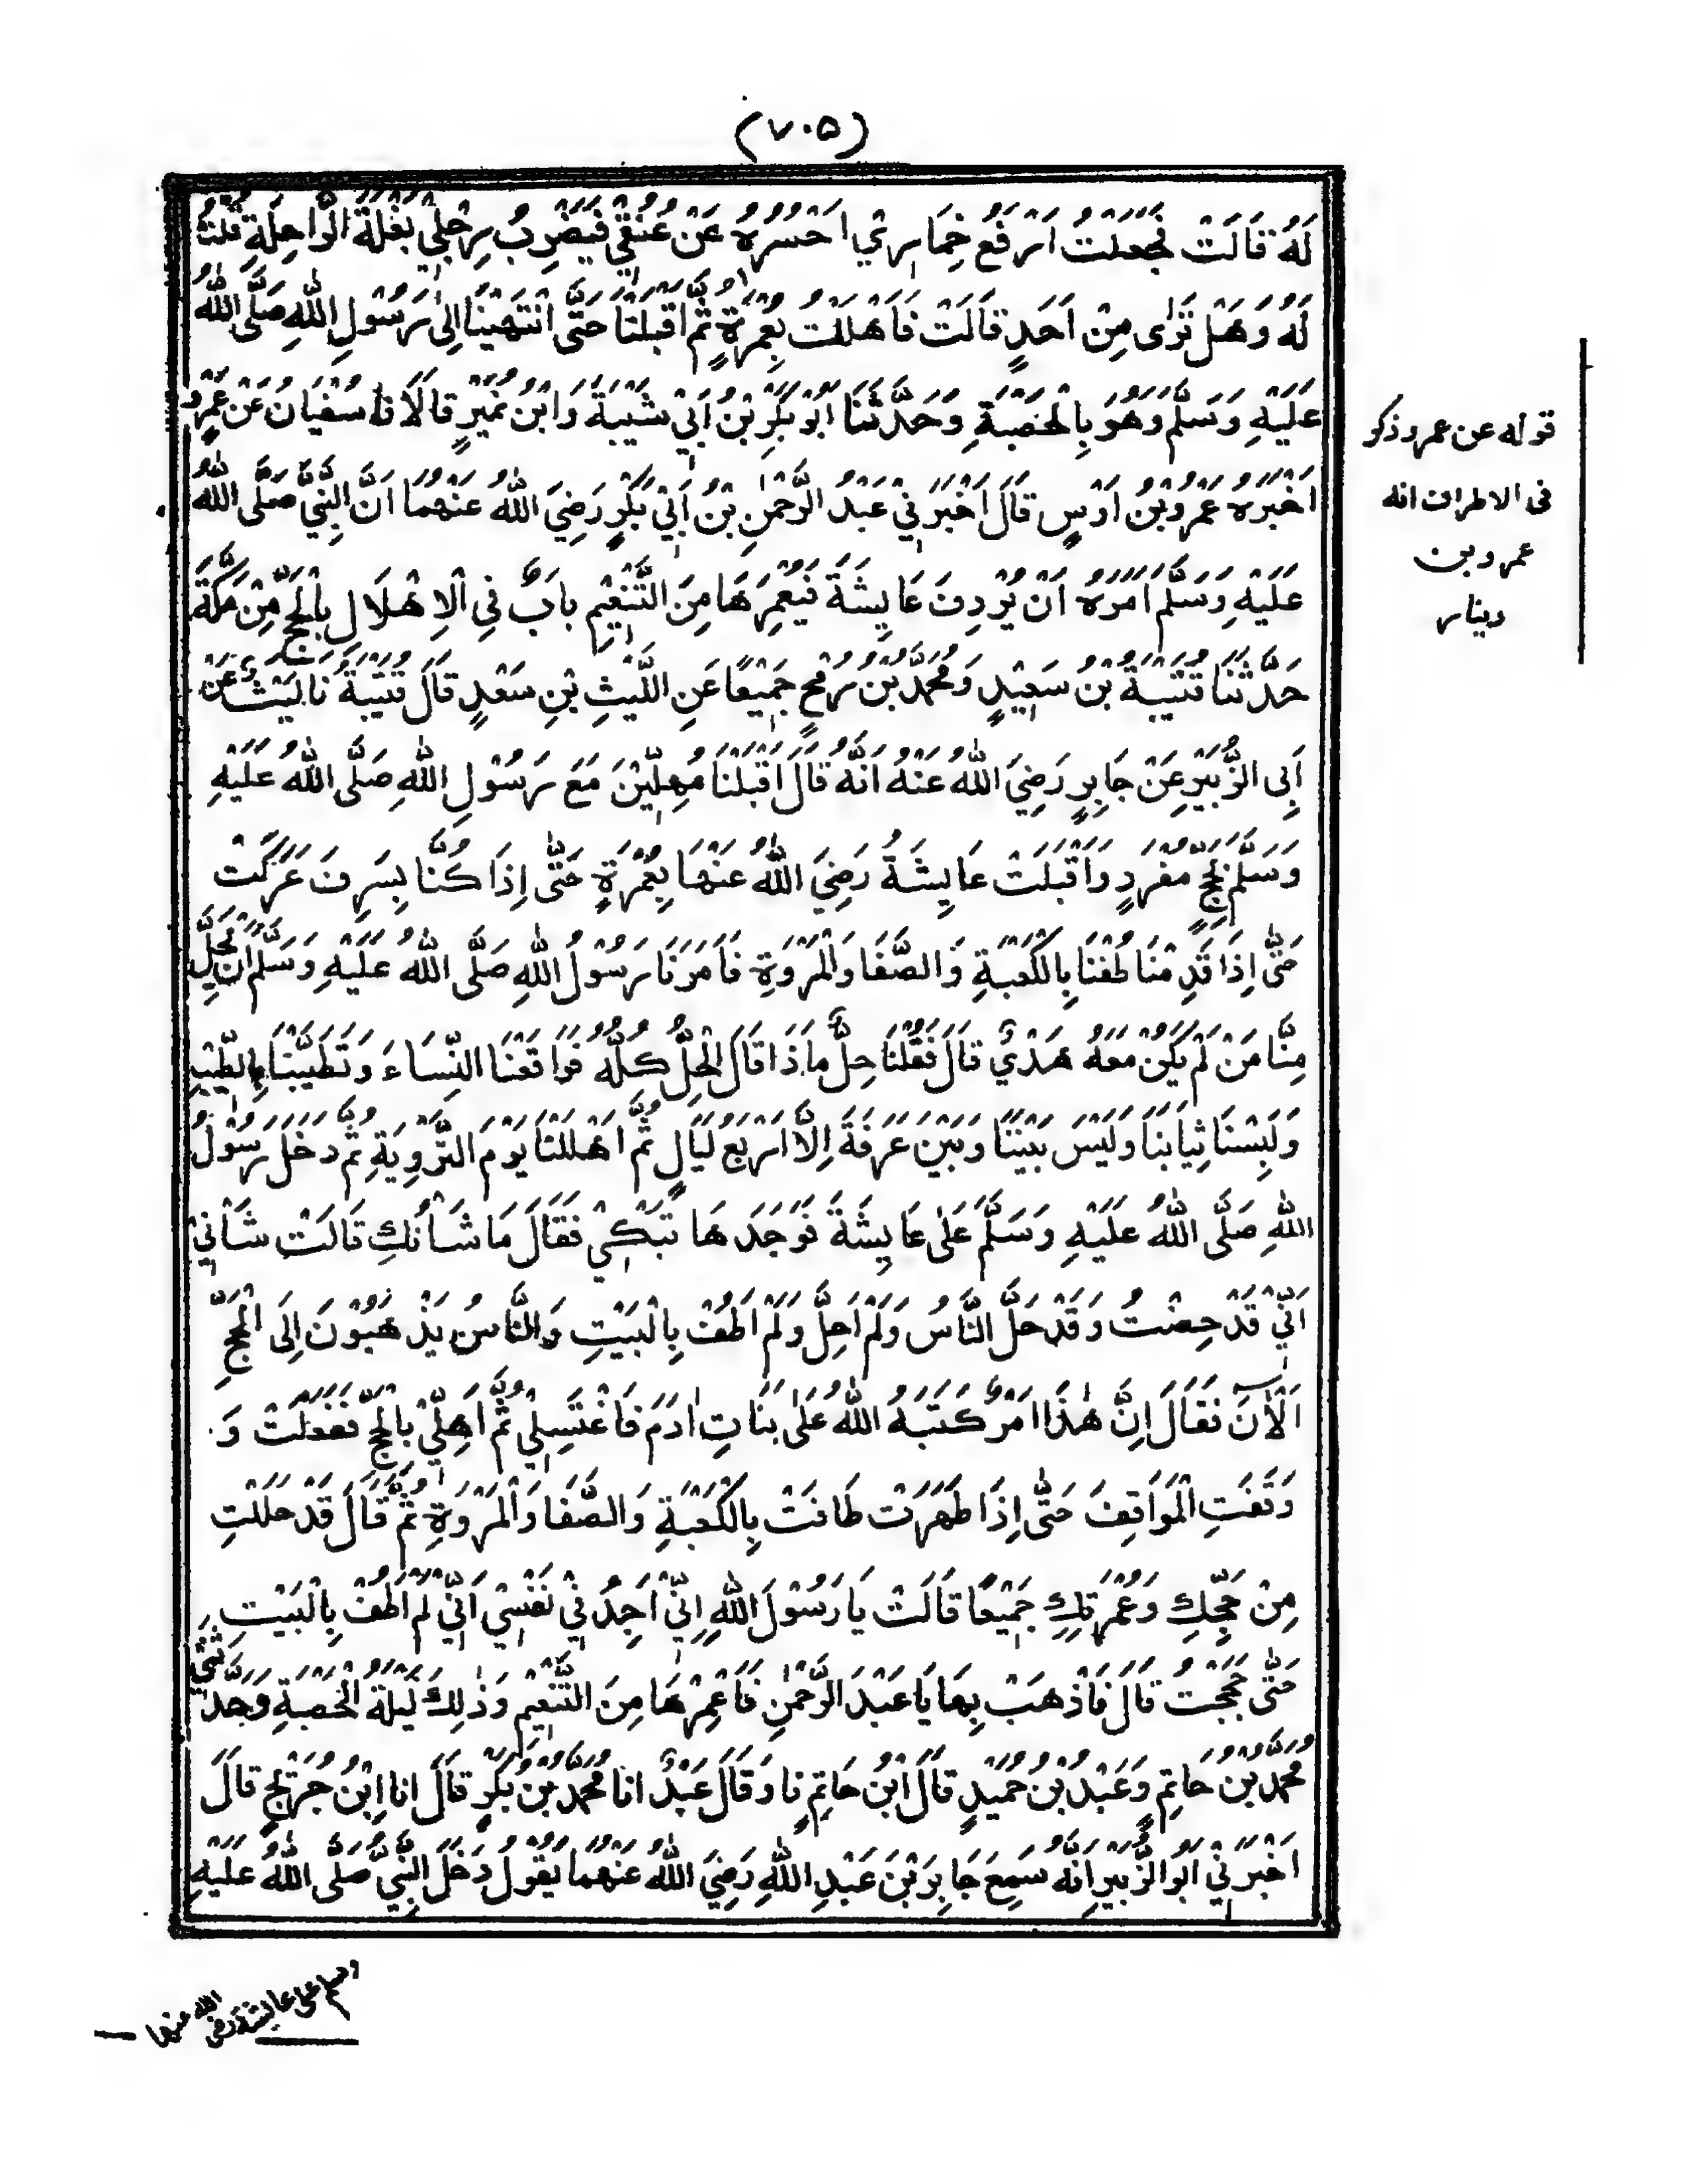 (۷۰۵)
لَهُ قَالَتْ فَجَعَلْتُ اَرْفَعُ خِمَارِيْ اَحْسُرُهُ عَنْ عُنُقِيْ فَيَضْرِبُ رِجْلِيْ بِعْلَةِ الرَّاحِلَةِ قُلْتُ
لَهُ وَهَلْ تَرٰى مِنْ اَحَدٍ قَالَتْ فَاَهْلَلْتُ بِعُمْرَةٍ ثُمَّ اَقْبَلْنَا حَتّٰى انْتَهَيْنَا اِلٰى رَسُوْلِ اللّٰهِ صَلَّى اللّٰهُ
عَلَيْهِ وَسَلَّمَ وَهُوَ بِالْحَصْبَةِ وَحَدَّثَنَا اَبُوْ بَكْرِ بْنُ اَبِيْ شَيْبَةَ وَابْنُ نُمَيْرٍ قَالَا نَا سُفْيَانُ عَنْ عَمْرٍو
اَخْبَرَهُ عَمْرُو بْنُ اَوْسٍ قَالَ اَخْبَرَنِيْ عَبْدُ الرَّحْمٰنِ بْنُ اَبِيْ بَكْرٍ رَضِيَ اللّٰهُ عَنْهُمَا اَنَّ النَّبِيَّ صَلَّى اللّٰهُ
عَلَيْهِ وَسَلَّمَ اَمَرَهُ اَنْ يُرْدِفَ عَايِشَةَ فَيُعْمِرَهَا مِنَ التَّنْعِيْمِ بَابٌ فِي الْاِهْلَالِ بِالْحَجِّ مِنْ مَكَّةَ
حَدَّثَنَا قُتَيْبَةُ بْنُ سَعِيْدٍ وَمُحَمَّدُ بْنُ رُمْحٍ جَمِيْعًا عَنِ اللَّيْثِ بْنِ سَعْدٍ قَالَ قُتَيْبَةُ نَا لَيْثٌ عَنْ
اَبِي الزُّبَيْرِ عَنْ جَابِرٍ رَضِيَ اللّٰهُ عَنْهُ اَنَّهُ قَالَ اَقْبَلْنَا مُهِلِّيْنَ مَعَ رَسُوْلِ اللّٰهِ صَلَّى اللّٰهُ عَلَيْهِ
وَسَلَّمَ بِحَجٍّ مُفْرَدٍ وَاَقْبَلَتْ عَايِشَةُ رَضِيَ اللّٰهُ عَنْهَا بِعُمْرَةٍ حَتّٰى اِذَا كُنَّا بِسَرِفَ عَرَكَتْ
حَتّٰى اِذَا قَدِمْنَا طُفْنَا بِالْكَعْبَةِ وَالصَّفَا وَالْمَرْوَةِ فَاَمَرَنَا رَسُوْلُ اللّٰهِ صَلَّى اللّٰهُ عَلَيْهِ وَسَلَّمَ اَنْ يَّحِلَّ
مِنَّا مَنْ لَّمْ يَكُنْ مَعَهُ هَدْيٌ قَالَ فَقُلْنَا حِلُّ مَا ذَا قَالَ الْحِلُّ كُلُّهُ فَوَاقَعْنَا النِّسَاءَ وَتَطَيَّبْنَا بِالطِّيْبِ
وَلَبِسْنَا ثِيَابَنَا وَلَيْسَ بَيْنَنَا وَبَيْنَ عَرَفَةَ اِلَّا اَرْبَعُ لَيَالٍ ثُمَّ اَهْلَلْنَا يَوْمَ التَّرْوِيَةِ ثُمَّ دَخَلَ رَسُوْلُ
اللّٰهِ صَلَّى اللّٰهُ عَلَيْهِ وَسَلَّمَ عَلٰى عَايِشَةَ فَوَجَدَهَا تَبْكِيْ فَقَالَ مَا شَاْنُكِ قَالَتْ شَاْنِيْ
اَنِّيْ قَدْ حِضْتُ وَقَدْ حَلَّ النَّاسُ وَلَمْ اَحِلَّ وَلَمْ اَطُفْ بِالْبَيْتِ وَالنَّاسُ يَذْهَبُوْنَ اِلَى الْحَجِّ
اَلْاٰنَ فَقَالَ اِنَّ هٰذَا اَمْرٌ كَتَبَهُ اللّٰهُ عَلٰى بَنَاتِ اٰدَمَ فَاغْتَسِلِيْ ثُمَّ اَهِلِّيْ بِالْحَجِّ فَفَعَلَتْ وَ
وَقَفَتِ الْمَوَاقِفَ حَتّٰى اِذَا طَهَرَتْ طَافَتْ بِالْكَعْبَةِ وَالصَّفَا وَالْمَرْوَةِ ثُمَّ قَالَ قَدْ حَلَلْتِ
مِنْ حَجِّكِ وَعُمْرَتِكِ جَمِيْعًا قَالَتْ يَا رَسُوْلَ اللّٰهِ اِنِّيْ اَجِدُ فِيْ نَفْسِيْ اَنِّيْ لَمْ اَطُفْ بِالْبَيْتِ
حَتّٰى حَجَجْتُ قَالَ فَاذْهَبْ بِهَا يَا عَبْدَ الرَّحْمٰنِ فَاَعْمِرْهَا مِنَ التَّنْعِيْمِ وَذٰلِكَ لَيْلَةَ الْحَصْبَةِ وَحَدَّثَنِيْ
مُحَمَّدُ بْنُ حَاتِمٍ وَعَبْدُ بْنُ حُمَيْدٍ قَالَ ابْنُ حَاتِمٍ نَا وَقَالَ عَبْدٌ اَنَا مُحَمَّدُ بْنُ بَكْرٍ قَالَ اَنَا ابْنُ جُرَيْجٍ قَالَ
اَخْبَرَنِيْ اَبُو الزُّبَيْرِ اَنَّهُ سَمِعَ جَابِرَ بْنَ عَبْدِ اللّٰهِ رَضِيَ اللّٰهُ عَنْهُمَا يَقُوْلُ دَخَلَ النَّبِيُّ صَلَّى اللّٰهُ عَلَيْهِ
قوله عن عمرو ذكر
فى الاطراف انه
عمرو بن
دينار
وسلم على عايشة رضى الله عنها